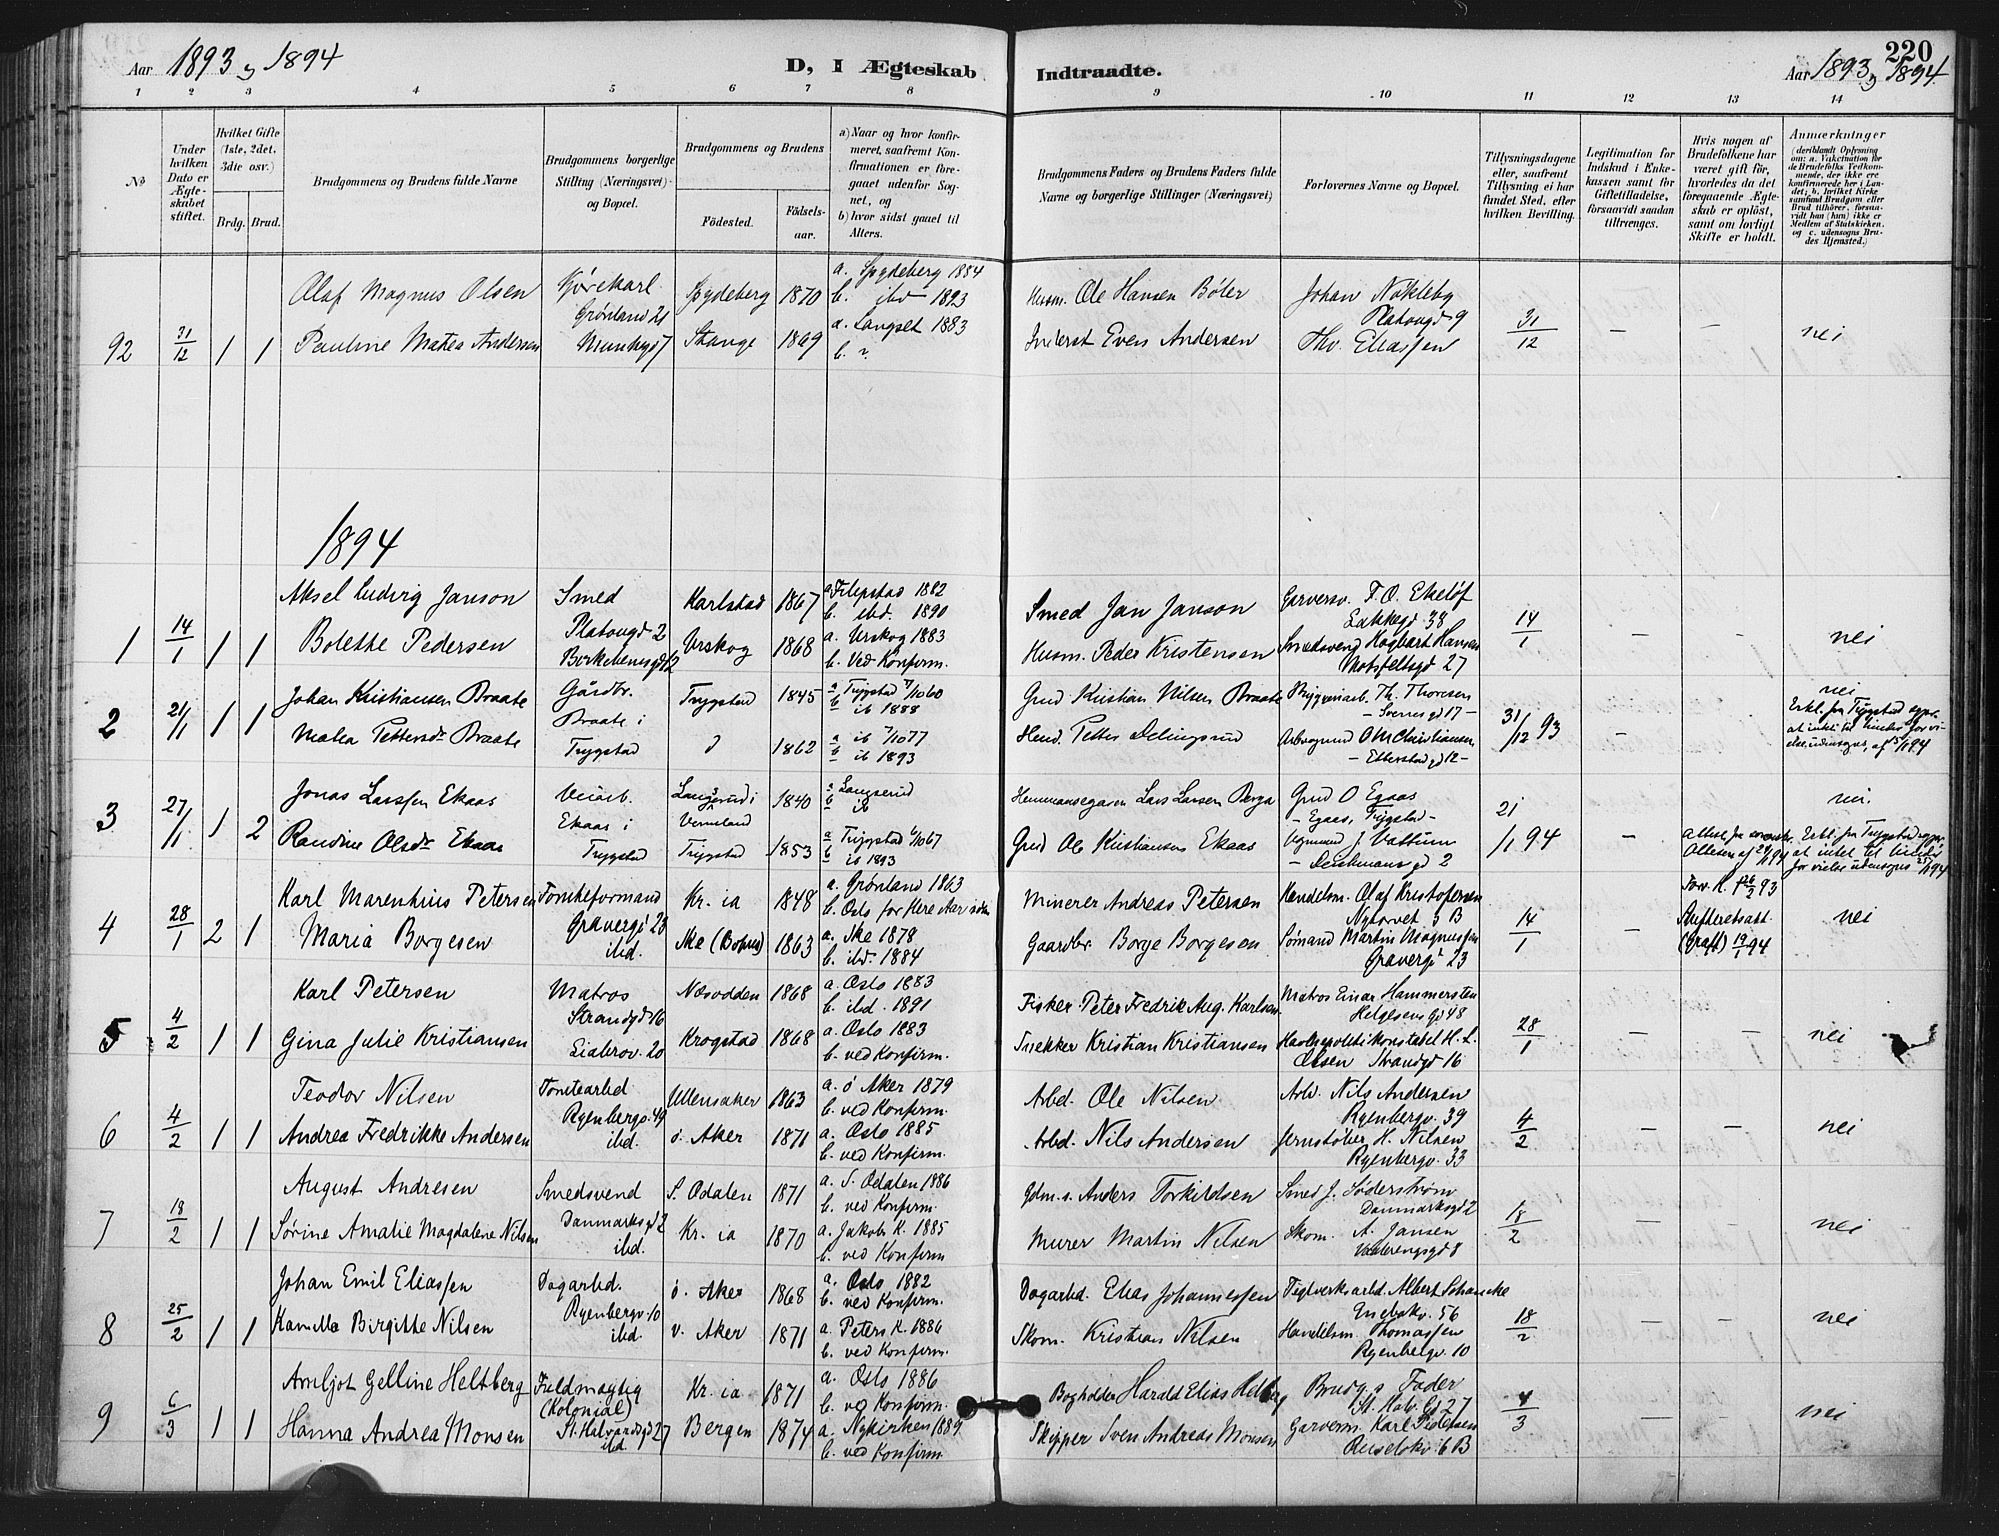 Aar 1893 & 1894
D, I Ægteskab Indtraadte.
220
Aar 1893 & 1894
1 2 3 4 5 6 7 8 9 10 11 12 13 14
№
Under hvilken Dato er Ægteskabet stiftet.
Hvilket Gifte (1ste, 2det, 3die osv.)
Brdg. Brud.
Brudgommens og Brudens fulde Navne
Brudgommens borgerlige Stilling (Næringsvei) og Bopæl.
Brudgommens og Brudens
Fødested.
Fødselsaar.
a) Naar og hvor konfirmeret, saafremt Konfirmationen er foregaaet udenfor Sognet, og
b) hvor sidst gaaet til Alters.
Brudgommens Faders og Brudens Faders fulde Navne og borgerlige Stillinger (Næringsvei)
Forlovernes Navne og Bopæl.
Tillysningsdagene eller, saafremt Tillysning ei har fundet Sted, efter hvilken Bevilling.
Legitimation for Indskud i Enkekassen samt for Giftetilladelse, forsaavidt saadan tiltrænges.
Hvis nogen af Brudefolkene har været gift før, hvorledes da det foregaaende Ægteskab er opløst, samt om lovligt Skifte er holdt.
Anmærkninger (deriblandt Oplysning om: a. Vakcination for de Brudefolks Vedkommende, der ikke ere konfirmerede her i Landet; b. hvilket Kirkesamfund Brudgom eller Brud tilhører, forsaavidt han (hun) ikke er Medlem af Statskirken, og c. udensogns Brudes Hjemsted.)
Olaf Magnus Olsen Kjørekarl Spydeberg 1870 a. Spydeberg 1884 Husm. Ole Hansen Bøler Johan Nökleby
Grønland 21 b. ibd 1893 Platougd 9
92 31/12 1 1 Pauline Mathea Andersen Munkegd 7 Stange 1869 a. Langset 1883 Inderst Even Andersen Thv. Eliassen 31/12 — — nei
b. ?
1894
Aksel Ludvig Janson Smed Karlstad 1867 a. Filipstad 1882 Smed Jan Janson Garversv. F. O. Ekelöf
Platougd 2 b. ibd. 1890 Lakkegd 38
1 14/1 1 1 Bolethe Pedersen Birkebeinergd 12 Urskog 1868 a. Urskog 1883 Husm. Peder Kristensen Smedsvend Hagbart Hansen 14/1 — — nei
b. Ved Konfirm. Motzfeltsgd 27
Johan Kristiansen Braate Gårdbr. Trygstad 1845 a Trygstad 7/10 60 Grd Kristian Nilsen Braate Bryggeriarb. Th. Thoresen nei
Braate i b ib 1888 — Sverres gd 17 —
2 21/1 1 1 Mathea Pettersdr Braate Trygstad d 1862 a ib 7/10 77 Petter Delingsrud O M Christiansen 31/12 93 —
b ib 1893 — Etterstad gd 12 —
Erkl. fra Trygstad sogn, at intet til hinder for vielse udensogns, af 15/1 94
Jonas Larssen Ekaas Veiarb. Langserud i Vermeland 1840 a Langserud Lars Larsen Berga Grd O Egaas nei.
b ib — Egaas, Trygstad —
3 27/1 1 2 Randine Olsdr Ekaas Ekaas i Trygstad Trygstad 1853 a Trygstad 1/10 67 Grd Ole Kristiansen Ekaas Vognmand J. Vattum 21/1 94 —
b ib 1893 — Deichmans gd 2
Erkl. fra Trygstad sogn, at intet til hinder for vielse udensogns 25/1 94
Karl Marenhius Petersen Tomteformand Kr. ia 1848 a. Grönland 1863 Minerer Andreas Petersen Handelsm. Olaf Kristofersen
Gravergd 23 b. Oslo for flere Aar siden Nytorvet 9 B
4 28/1 2 1 Maria Borgesen ibd. Ske (Bohus) 1863 a. Ske 1878 Gaardbr Borge Borgesen Sømand Martin Magnussen 14/1 — Skifteretsatt. 19/1 94 nei
b. ibd. 1884 Gravergd 23
Karl Petersen Matros Næsodden 1868 a. Oslo 1883 Fisker Peter Fredrik Aug. Karlsen Matros Einar Hammersten
Strandgd 16 b. ibd. 1891 Helgesens gd 48
5 4/2 1 1 Gina Julie Kristiansen Liabrov. 20 Krogstad 1868 a. Oslo 1883 Snekker Kristian Kristiansen Havnepolitikonstabel H. L. 28/1 — — nei
b. ved Konfirm. Olsen Strandgd 16
Teodor Nilsen Tomtearbd Ullensaker 1863 a. ö Aker 1879 Arbd. Ole Nilsen Arb. Nils Andersen
Ryenbergv. 49 b. ved Konfirm. Ryenbergv. 39
6 4/2 1 1 Andrea Fredrikke Andersen ibd. ö. Aker 1871 a. Oslo 1885 Arbd. Nils Andersen Jernstøber H. Nilsen 4/2 — — nei
b. ved Konfirm. Ryenbergv. 33
August Andresen Smedsvend S. Odalen 1871 a. S. Odalen 1886 Gdm. s. Anders Torkildsen Smed J. Söderström
Danmarksgd 2 b. ved Konfirm. Danmarksgd 2
7 18/2 1 1 Sörine Amalie Magdalene Nilsen ibd. Kr. ia 1870 a. Jakobs K. 1885 Murer Martin Nilsen Skom. A. Jansen 18/2 — — nei
b. ved Konfirm Vaalerengsgd 8
Johan Emil Eliassen Dagarbd. ö. Aker 1868 a. Oslo 1882 Dagarbd. Elias Johannessen Teglverksarbd. Albert Schancke
Ryenbergv. 10 b. ved Konfirm. Enebakv. 56
8 25/2 1 1 Kamilla Birgitte Nilsen ibd. v. Aker 1871 a. Peters K. 1886 Skom. Kristian Nilsen Handelsm. Thomassen 18/2 nei
b. ved Konfirm. Ryenbergv. 10
Arnljot Gelline Heltberg Fuldmægtig Kr. ia 1871 a. Oslo 1886 Bogholder Harald Elias Heltberg Brudg.s Fader
(Kolonial) b. ved Konfirm. St. Halv. Gd 27
9 6/3 1 1 Hanna Andrea Monsen St. Halvardsgd 27 Bergen 1874 a. Nykirken 1889 Skipper Sven Andreas Monsen Garverm. Karl Pedersen 4/3 — — nei
ibd b. ved Konfirm.